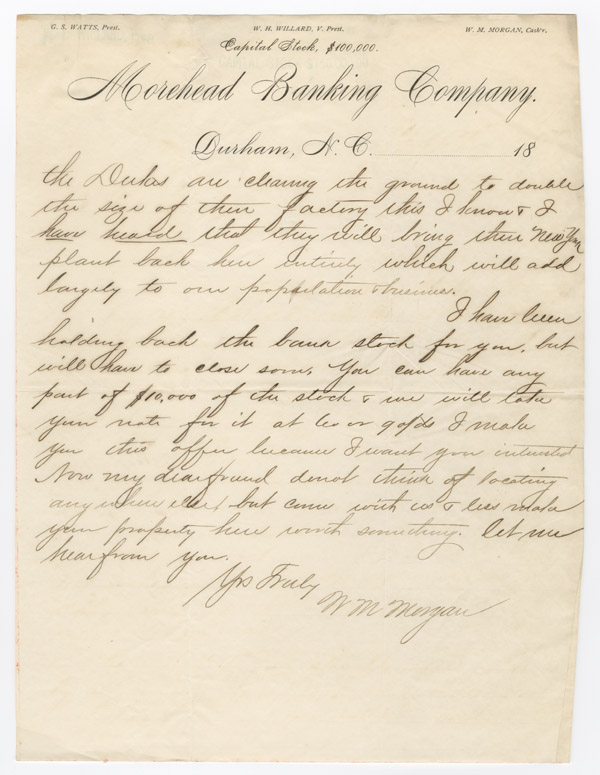 G. S. WATTS, Prest.
W. H. WILLARD, V. Prest.
W. M. MORGAN, Cash'r.
Capital Stock, $100,000.
Morehead Banking Company.
Durham, N. C. 18
the Dukes are clearing the ground to double
the size of their factory this I know & I
have heard that they will bring their New York
plant back here entirely which will add
largely to our population & business.
I have been
holding back the bank stock for you, but
will have to close soon. You can have any
part of $10,000 of the stock & we will take
your note for it at 60 or 90/ds I make
you this offer because I want you interested
Now my dear friend do not think of locating
anywhere else, but come with us & less make
your property here worth something. let me
hear from you.
Yrs Truly
W M Morgan